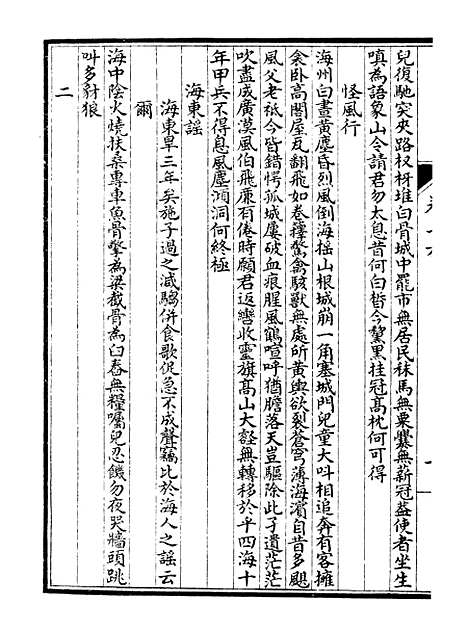 兒復馳突夾路杈枒堆白骨城中罷市無居民秣馬無粟爨無薪冠蓋使者坐生
嗔為語象山令請君勿太息昔何白皙今黧黑挂冠高枕何可得
怪風行
海州白晝黃塵昏烈風倒海搖山根城崩一角塞城門兒童大叫相追奔有客擁
衾卧高閣屋瓦翻飛如卷籜驚禽駭獸無處所黃輿欲裂蒼穹薄海濵自昔多颶
風父老祗今皆錯愕孤城屢破血痕腥風鶴喧呼猶膽落天豈驅除此子遺茫茫
吹盡成廣漠風伯飛廉有倦時願君返轡收靈旗高山大壑無轉移於乎四海十
年甲兵不得息風塵澒洞何終極
海東謡
海東旱三年矣施子過之減騶併食歌促急不成聲竊比於海人之謡云
爾
海中陰火燒扶桑專車魚骨擎為梁截骨為臼舂無糧囑兒忍饑勿夜哭牆頭跳
叫多豺狼
二